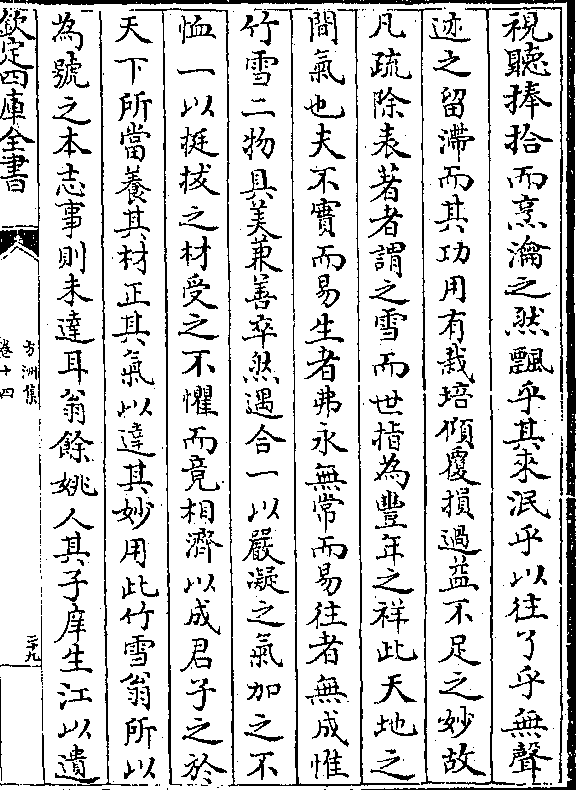 視聽捧拾而烹瀹之然飄乎其來泯乎以往了乎無聲
迹之留滯而其功用有栽培傾覆損過益不足之妙故
凡疏除表著者謂之雪而世指為豐年之祥此天地之
間氣也夫不實而易生者弗永無常而易往者無成惟
竹雪二物具美兼善卒然遇合一以嚴凝之氣加之不
恤一以挺拔之材受之不懼而竟相濟以成君子之於
天下所當養其材正其氣以達其妙用此竹雪翁所以
為號之本志事則未達耳翁餘姚人其子庠生江以遺
欽定四庫全書
方洲集
卷十四
二十九